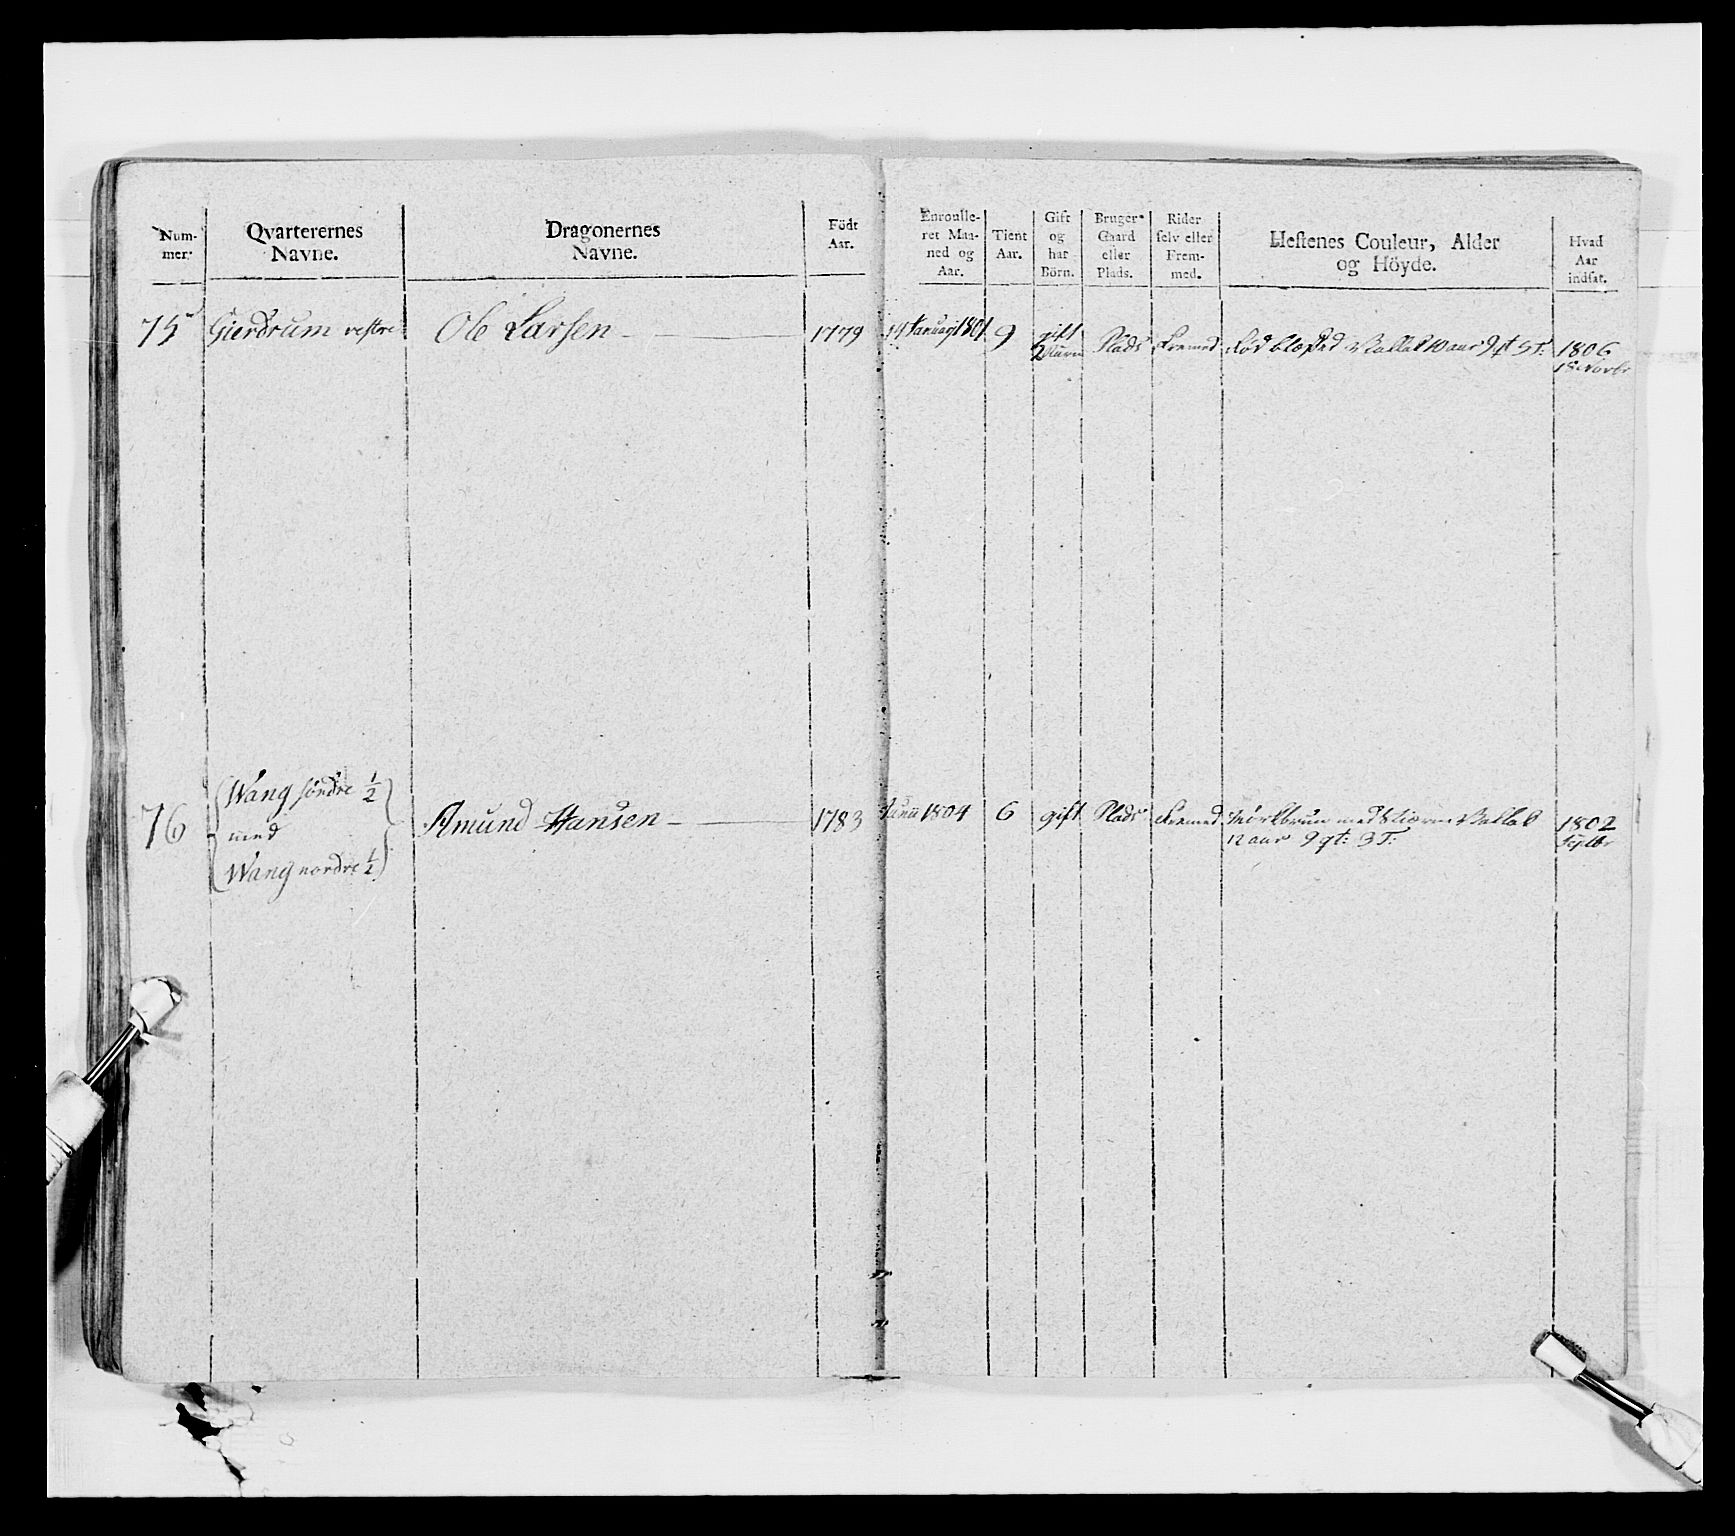 Num-
mer.
Qvarterernes
Navne.
Dragonernes
Navne.
Födt
Aar.
Enroulle-
ret Maa-
ned og
Aar.
Tient
Aar.
Gift
og
har
Börn.
Bruger
Gaard
eller
Plads.
Rider
selv eller
Frem-
med.
Hestenes Couleur, Alder
og Höyde.
Hvad
Aar
indsat.
75 Gierdrum vestre Ole Larsen 1779 14 Januarj 1801 9 gift Plads Fremed Rød blesed Vallak 10 aar 9 qt 5 T: 1806
2 Børn 18 Novbr
Wang söndre 1/2
76 med Amund Hansen 1783 Junii 1804 6 gift Plads Fremed Mörkbrun med Stierne Vallak 1802
12 aar 9 qt: 3 T: Septbr
Wang nordre 1/2